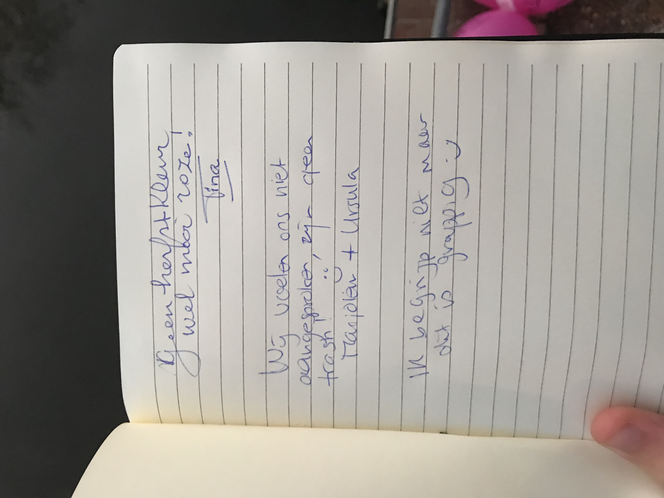 Geen herfstkleur
wel mooi roze!
Tina
Wij voelen ons niet
aangesproken, zijn geen
trash! ü
Marjolein + Ursula
Ik begrijp niet maar
dit is grappig :)